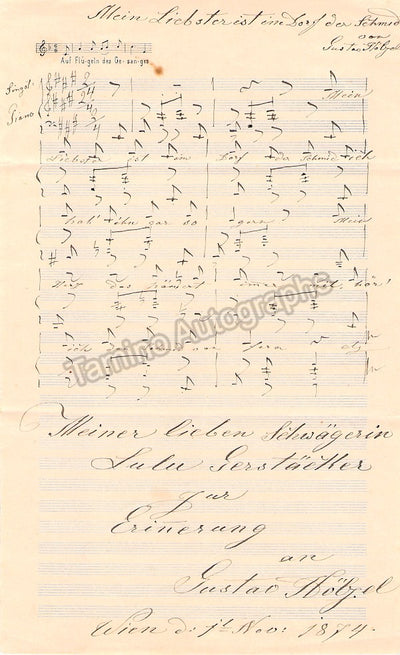 Mein Liebster ist im Dorf der Schmid
von
Gustav Hölzel
Auf Flü-geln des Ge-san-ges
Singst.
Piano
2/4
2/4
2/4
Mein
Liebster ist im Dorf der Schmid ich
hab' ihn gar so gern Mein
immer mit,
ich
fern
Tamino Autographs
Meiner lieben Schwägerin
Lulu Gerstäcker
zur
Erinerung
an
Gustav Hölzel
Wien d. 1t Nov: 1874.